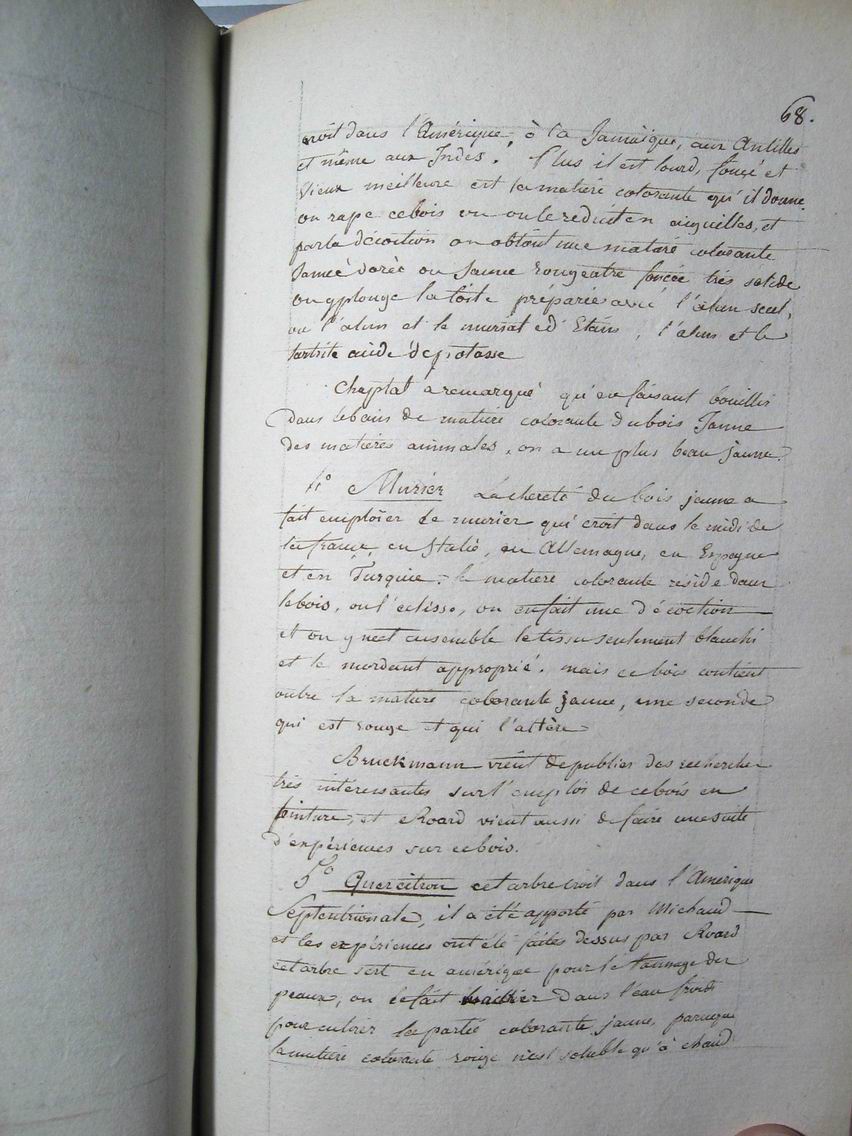 68.
croit dans l'Amérique, à la Jamaïque, aux Antilles
et même aux Indes. Plus il est lourd, foncé et
vieux meilleure est la matière colorante qu'il donne.
on rape ce bois ou on le reduit en aiguilles, et
par la décoction on obtient une matière colorante
Jaune dorée ou Jaune rougeatre foncée très solide
on y plonge la toile préparée avec l'alun seul,
ou l'alun et le muriat e d'Etain, l'alun et le
tartrite acide de potasse
Chaptal a remarqué qu'en faisant bouillir
dans le bain de matière colorante du bois Jaune
des matières animales, on a un plus beau jaune.
4° Murier La cherté du bois jaune a
fait emploïer le murier qui croit dans le midi de
la france, en Italie, en Allemagne, en Espagne
et en Turquie, la matière colorante réside dans
le bois, on l'eclisse, on en fait une décoction
et on y met ensemble le tissu seulement blanchi
et le mordant approprié. mais ce bois contient
outre la matière colorante jaune, une seconde
qui est rouge et qui l'altère
Bruckmann vient de publier des recherches
très intéressantes sur l'emploi de ce bois en
teinture, et Roard vient aussi de faire une suite
d'expériences sur ce bois.
5° Quercitron cet arbre croit dans l'Amérique
Septentrionale, il a été apporté par Michaud
et les expériences ont été faites dessus par Roard
cet arbre sert en amérique pour le tannage des
peaux, on le fait dans l'eau froide
pour enlever la partie colorante jaune, parceque
la matière colorante rouge n'est soluble qu'à chaud